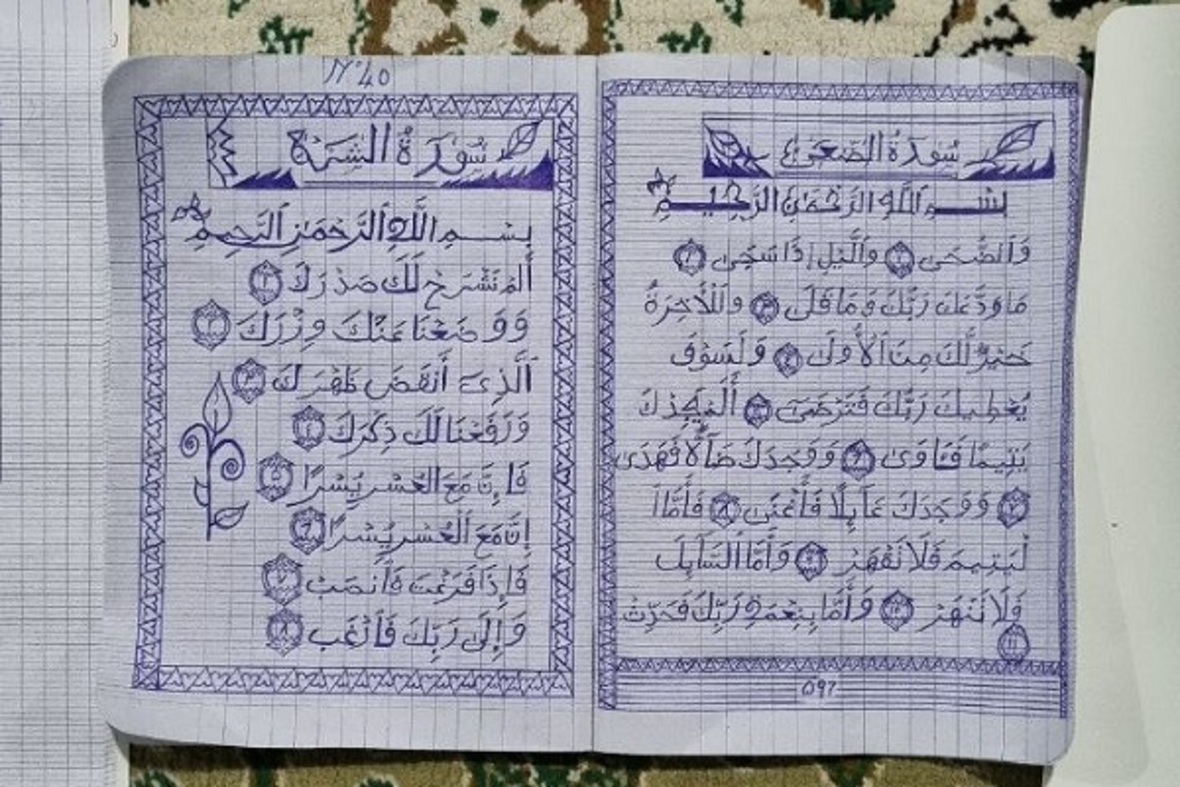 سُورَةُ الضُّحَىٰ
بِسْمِ اللَّهِ الرَّحْمَٰنِ الرَّحِيمِ
وَٱلضُّحَىٰ ١ وَٱلَّيْلِ إِذَا سَجَىٰ ٢
مَا وَدَّعَكَ رَبُّكَ وَمَا قَلَىٰ ٣ وَلَلْأَخِرَةُ
خَيْرٌ لَّكَ مِنَ ٱلْأُولَىٰ ٤ وَلَسَوْفَ
يُعْطِيكَ رَبُّكَ فَتَرْضَىٰٓ ٥ أَلَمْ يَجِدْكَ
يَتِيمًا فَـَٔاوَىٰ ٦ وَوَجَدَكَ ضَآلًّا فَهَدَىٰ
٧ وَوَجَدَكَ عَآئِلًا فَأَغْنَىٰ ٨ فَأَمَّا ا
لْيَتِيمَ فَلَا تَقْهَرْ ٩ وَأَمَّا ٱلسَّآئِلَ
فَلَا تَنْهَرْ ١٠ وَأَمَّا بِنِعْمَةِ رَبِّكَ فَحَدِّثْ
١١
597
N°40
سُورَةُ الشَّرْحِ
بِسْمِ ٱللَّهِ ٱلرَّحْمَٰنِ ٱلرَّحِيمِ
أَلَمْ نَشْرَحْ لَكَ صَدْرَكَ ١
وَوَضَعْنَا عَنكَ وِزْرَكَ ٢
ٱلَّذِىٓ أَنقَضَ ظَهْرَكَ ٣
وَرَفَعْنَا لَكَ ذِكْرَكَ ٤
فَإِنَّ مَعَ ٱلْعُسْرِ يُسْرًا ٥
إِنَّ مَعَ ٱلْعُسْرِ يُسْرًا ٦
فَإِذَا فَرَغْتَ فَٱنصَبْ ٧
وَإِلَىٰ رَبِّكَ فَٱرْغَب ٨